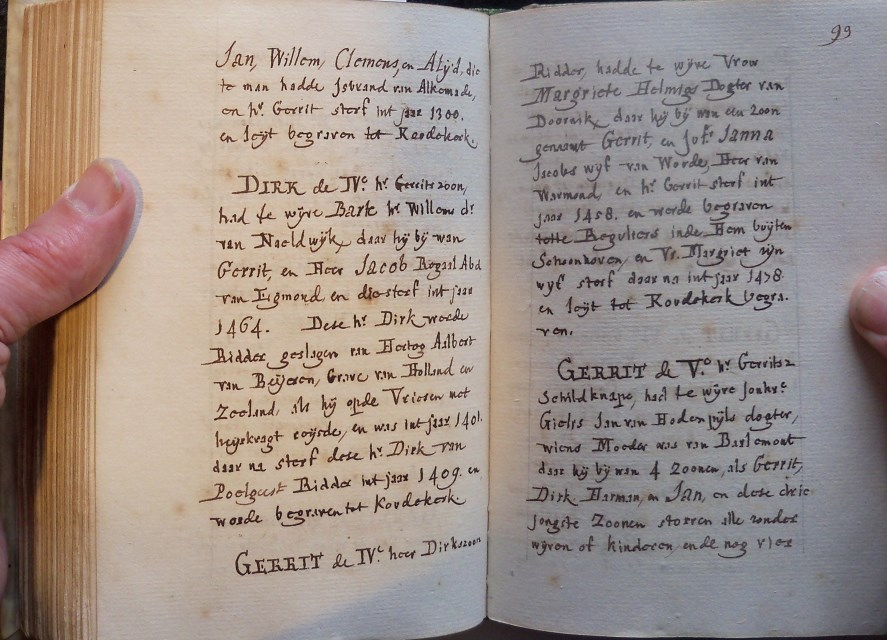 Jan, Willem, Clemens, en Alijd, die
te man hadde Jsbrand van Alkemade,
en hr. Gerrit sterf int jaar 1300.
en leyt begraven tot Koudekerk.
DIRK de IVe. hr. Gerrits zoon,
had te wijve Barte hr. Willems dr.
van Naeldwijk, daar hij bij wan
Gerrit, en Heer Jacob Rogaal Abd
van Egmond, en die sterf int jaar
1464. Dese hr. Dirk worde
Ridder geslagen van Hertog Aalbert
van Beijeren, Grave van Holland en
Zeeland, als hij opde Vriesen met
heijrkragt reijsde, en was int jaar 1401.
daar na sterf dese hr. Dirk van
Poelgeest Ridder int jaar 1409. en
worde begraven tot Koudekerk.
GERRIT de IVe. heer Dirks zoon
99
Ridder, hadde te wijve Vrou
Margriete Helmigs Dogter van
Doornik, daar hij bij wan een zoon
genaamt Gerrit, en Jofr. Janna
Jacobs wijf van Worde, Heer van
Warmond, en hr. Gerrit sterf int
jaar 1458. en worde begraven
totte Reguliers inden Hem buijten
Schoonhoven, en Vr. Margriet sijn
wijf sterf daar na int jaar 1478.
en leyt tot Koudekerk begra-
ven.
GERRIT de Ve. hr. Gerrits z
Schildknape, had te wijve Jonkvr.
Gielis Jan van Hodenpijls dogter,
wiens Moeder was van Barlemont
daar hij bij wan 4 zoonen, als Gerrit,
Dirk, Harman, en Jan, en dese drie
jongste Zoonen storven alle zonder
wijven of kinderen, ende nog vier